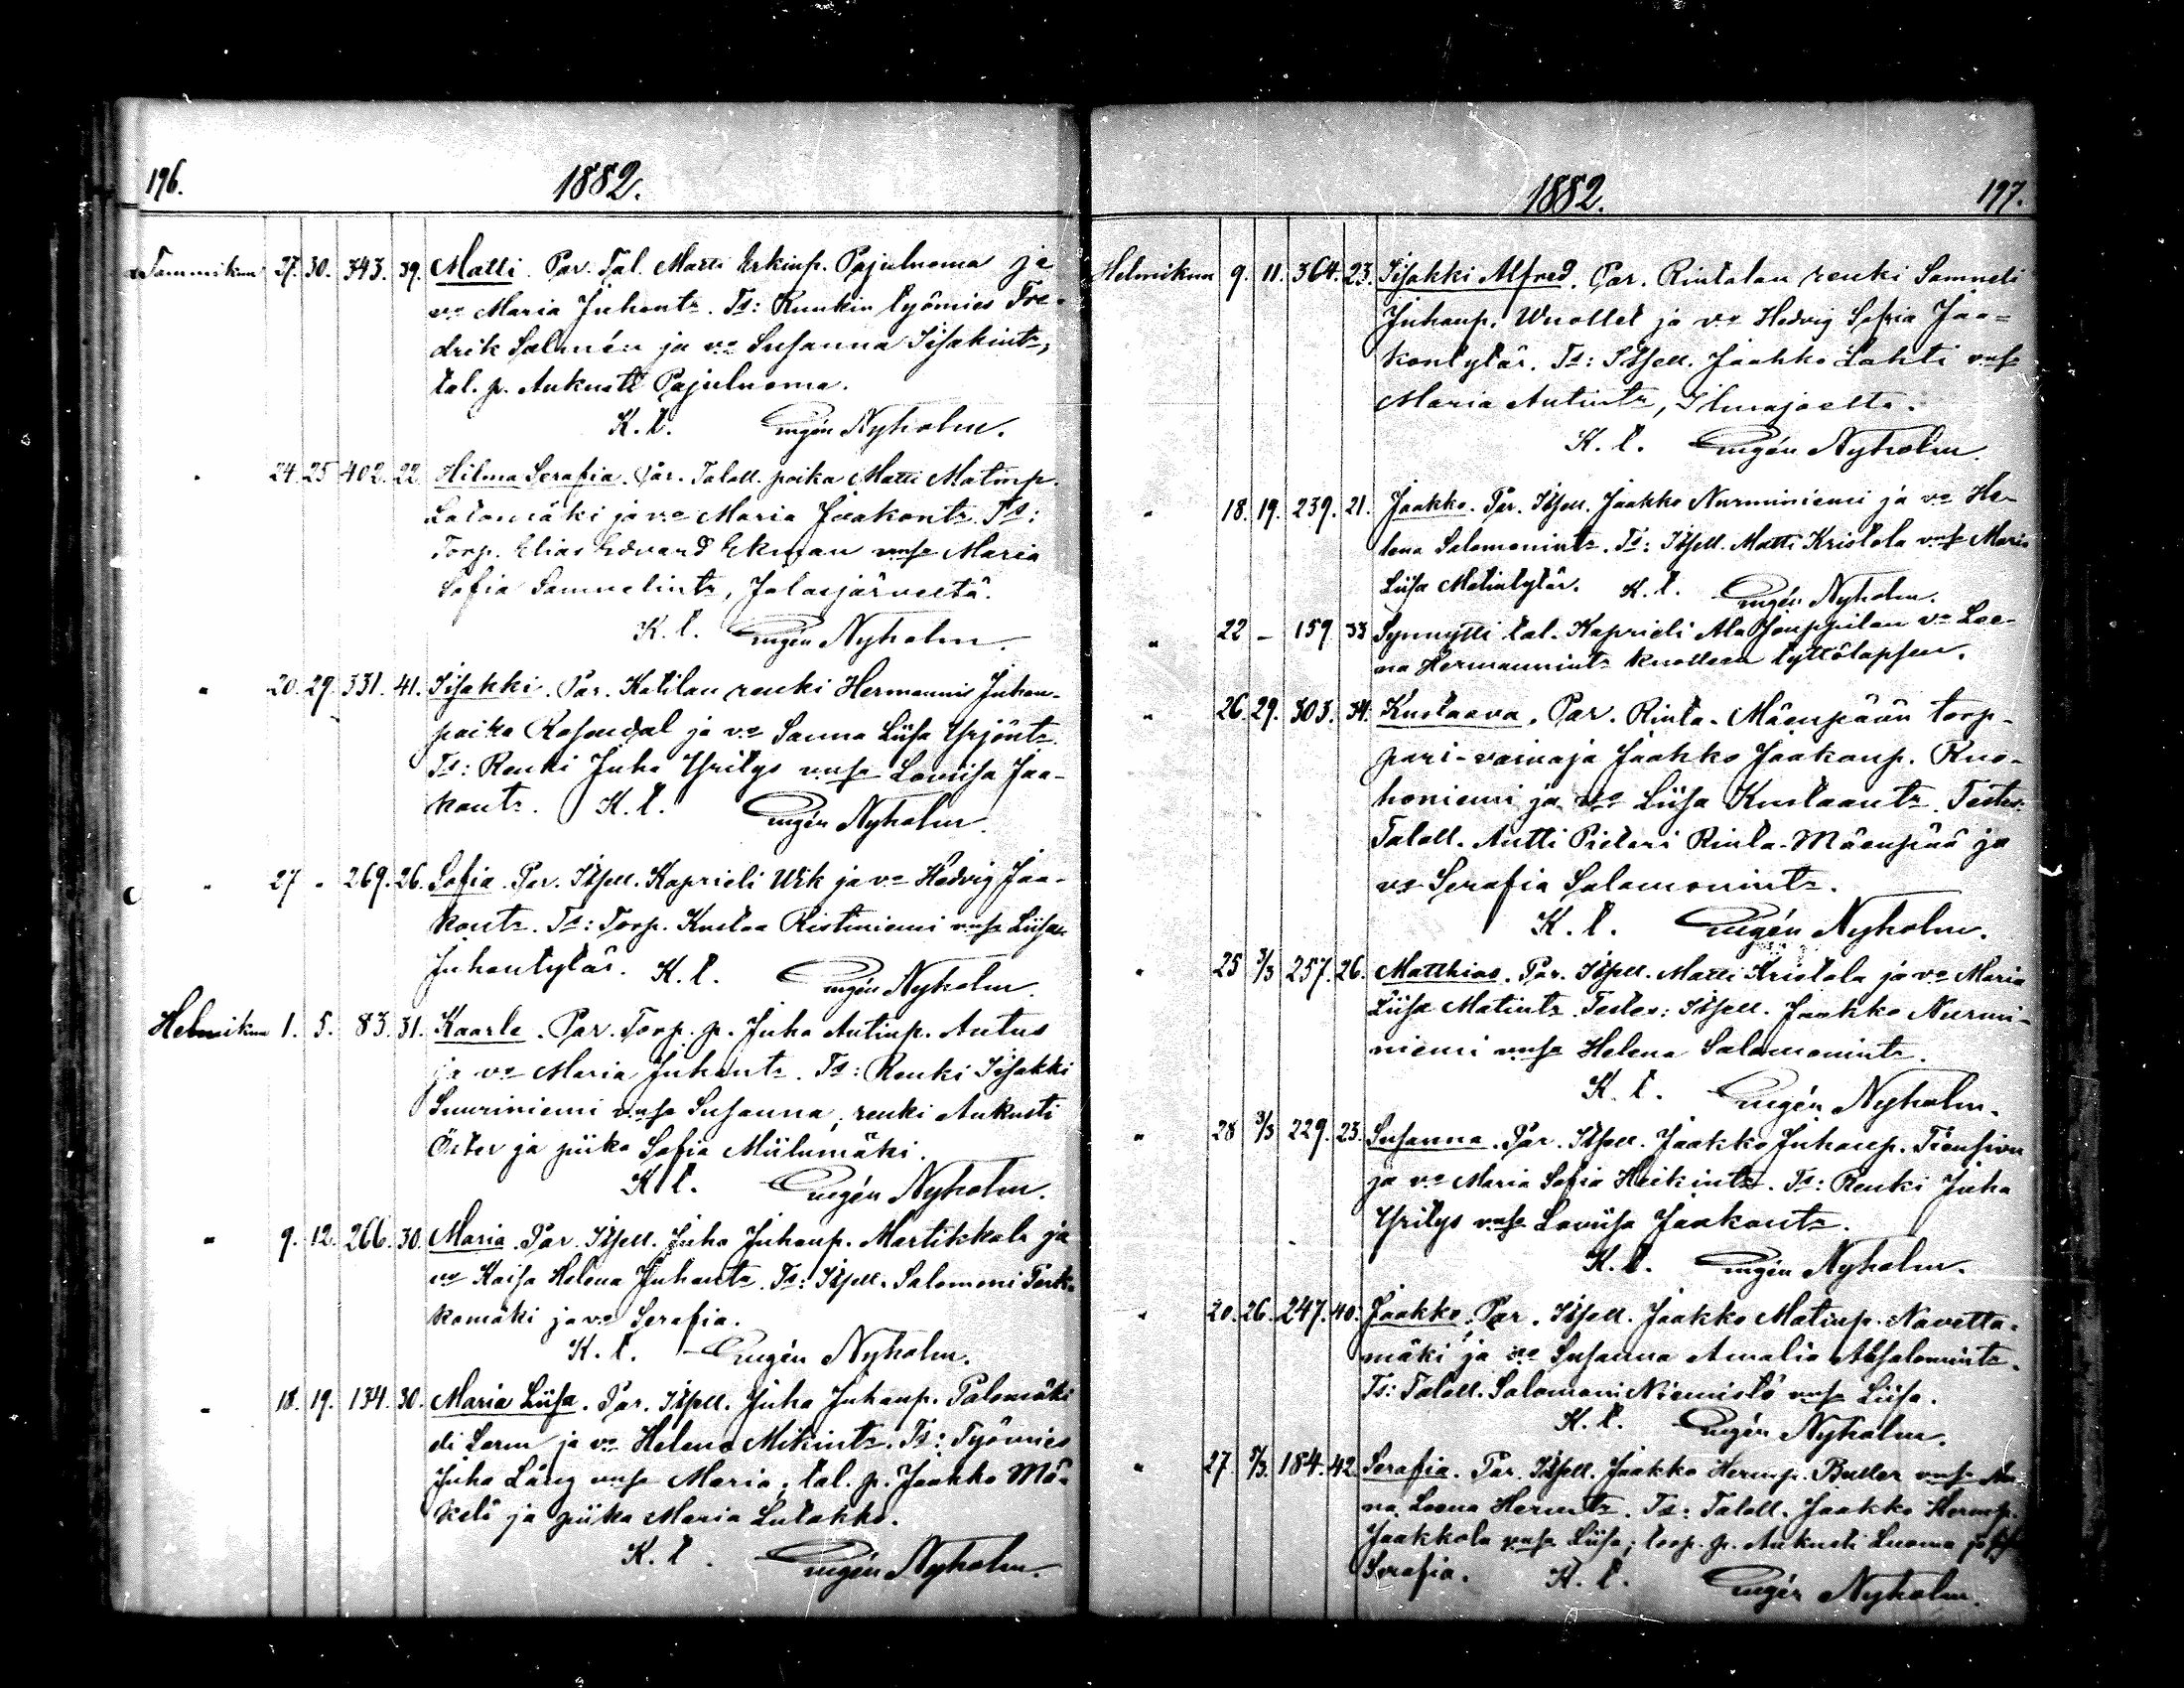 196.
1882.
Tammikuu 27. 30. 343. 39. Matti. Par. Tal. Matti Erkinp. Pajuluoma ja
vo Maria Juhantr. Ts: Ruukin työmies Fre-
drik Salmén ja vo Susanna Iisakintr,
tal. p. Aukusti Pajuluoma.
K. l. Eugén Nyholm.
" 24. 25 402. 22 Hilma Serafia. Par. Taloll. poika Matti Matinp.
Latomäki ja vo Maria Jaakontr. Ts:
Torp. Elias Edvard Ekman vaso Maria
Sofia Samuelintr, Jalasjärveltä.
K. l. Eugén Nyholm.
" 20. 29. 331. 41. Iisakki. Par. Katilan renki Hermanni Juhan-
poika Rosendal ja vo Sanna Liisa Yrjöntr.
Ts: Renki Juha Yritys vaso Loviisa Jaa-
kontr. K. l. Eugén Nyholm.
" 27 " 269. 26. Sofia. Par. Itsell. Kaprieli Wik ja vo Hedvig Jaa-
kontr. Ts: Torp. Kustaa Ristiniemi vaso Liisa
Juhantytär. K. l. Eugén Nyholm.
Helmikuu 1. 5. 83. 31. Kaarle. Par. Torp. p. Juha Antinp. Antus
ja vo Maria Juhantr. Ts: Renki Iisakki
Suuriniemi vaso Susanna, renki Aukusti
Öster ja piika Sofia Miilumäki.
K. l. Eugén Nyholm.
" 9. 12. 266. 30. Maria. Par. Itsell. Juha Juhanp. Martikkala ja
vo Kaisa Helena Juhantr. Ts: Itsell. Salomoni Perk-
komäki ja vo Serafia.
K. l. Eugén Nyholm.
" 18. 19. 134. 30. Maria Liisa. Par. Itsell. Juha Juhanp. Palomäki
eli Lorm ja vo Helena Mikintr. Ts: Työmies
Juha Lång vaso Maria; tal. p. Jaakko Mä-
kelä ja piika Maria Lutakko.
K. l. Eugén Nyholm.
1882.
197.
Helmikuu 9. 11. 364. 23. Iisakki Alfred. Par. Rintalan renki Samueli
Juhanp. Wuollet ja vo Hedvig Sofia Jaa-
kontytär. Ts: Itsell. Jaakko Lahti vaso
Maria Antintr, Ilmajoelta.
K. l. Eugén Nyholm.
" 18. 19. 239. 21. Jaakko. Par. Itsell. Jaakko Nurminiemi ja vo He-
lena Salomonintr. Ts: Itsell. Matti Kristola vaso Maria
Liisa Matintytär. K. l. Eugén Nyholm.
" 22 – 159. 33 Synnytti tal. Kaprieli Ala Jouppilan vo Lee-
na Hermannintr kuolleen tyttölapsen.
" 26. 29. 303. 34. Kustaava. Par. Rinta-Mäenpään torp-
pari-vainaja Jaakko Jaakonp. Ruo-
honiemi ja vo Liisa Kustaantr. Testes:
Taloll. Antti Pietari Rinta-Mäenpää ja
vo Serafia Salomonintr.
K. l. Eugén Nyholm.
" 25 3/3 257. 26. Matthias. Par. Itsell. Matti Kristola ja vo Maria
Liisa Matintr. Testes: Itsell. Jaakko Nurmi-
niemi vaso Helena Salomonintr.
K. l. Eugén Nyholm.
" 28 3/3 229. 23. Susanna. Par. Itsell. Jaakko Juhanp. Tiensivu
ja vo Maria Sofia Heikintr. Ts: Renki Juha
Yritys vaso Loviisa Jaakontr.
K. l. Eugén Nyholm.
" 20. 26. 247. 40. Jaakko. Par. Itsell. Jaakko Matinp. Navetta-
mäki ja vo Susanna Amalia Absalomintr.
Ts: Taloll. Salomoni Niemistö vaso Liisa.
K. l. Eugén Nyholm.
" 27. 184. 42. Serafia. Par. Itsell. Jaakko Hermp. Buller vaso
na Leena Hermtr. Ts: Taloll. Jaakko Hermp.
Jaakkola vaso Liisa; torp. p. Aukusti Luoma
Serafia. K. l. Eugén Nyholm.